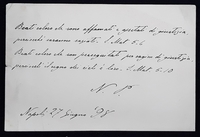 Beati coloro che sono affamati e assetati di giustizia
perciocchè saranno saziati. S. Mat. 5. 6
Beati coloro che son perseguitati per cagion di giustizia
perciocchè il regno dei cieli è loro. S. Mat. 5. 10
N. P.
Napoli 27 Giugno 98